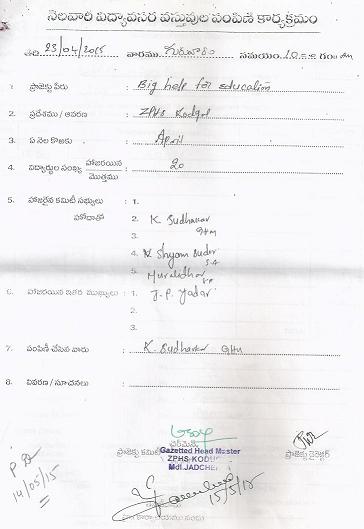 నెలవారి విద్యావసర వస్తువుల పంపిణీ కార్యక్రమం
తేది 23/04/2015 వారము గురువారం సమయం 10
1. ప్రాజెక్టు పేరు : Big help for education
2. ప్రదేశము / ఆవరణ : ZPHS Kodgal
3. ఏ నెల కొఱకు : April
4. విద్యార్థుల సంఖ్య హాజరయిన / మొత్తము : 20
5. హాజరైన కమిటీ సభ్యులు : 1.
హోదాతో 2. K Sudhakar
GHM
3.
4. Shyam Sunder
S.A
5. Muralidhar
6. హాజరయిన ఇతర ముఖ్యులు : 1. J. P. Yadav
2.
3.
7. పంపిణీ చేసిన వారు : K. Sudhakar GHM
8. వివరణ / సూచనలు :
ఛైర్మెన్
ప్రాజెక్టు కమిటీ
Gazetted Head Master
ZPHS KODG
Mdl.JADCHE
ప్రాజెక్టు డైరెక్టర్
14/05/15
15/5/15